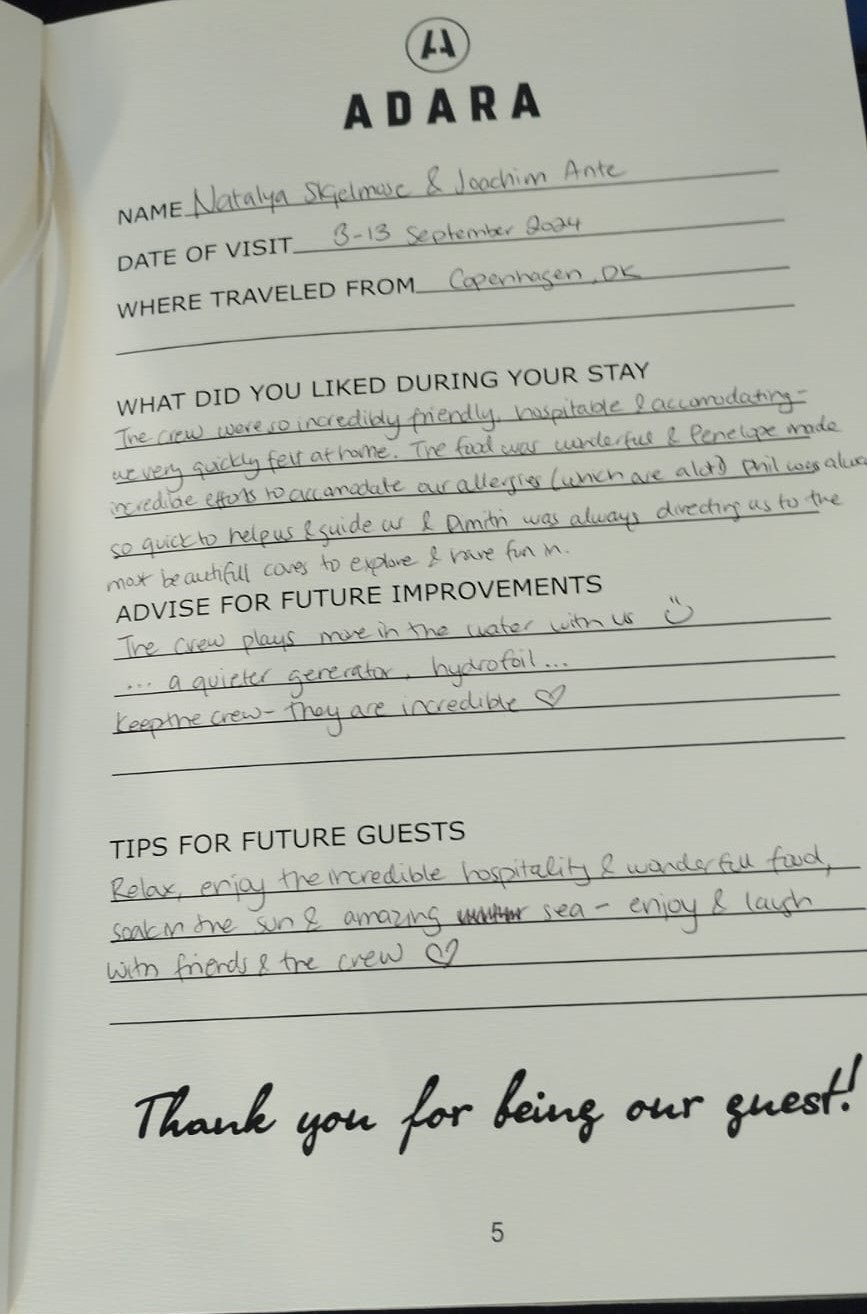 ADARA
NAME Natalya Skjelmose & Joachim Ante
DATE OF VISIT 3-13 September 2024
WHERE TRAVELED FROM Copenhagen, DK
WHAT DID YOU LIKED DURING YOUR STAY
The crew were so incredibly friendly, hospitable & accomodating -
we very quickly felt at home. The food was wonderful & Penelope made
incredible efforts to accomodate our allergies (which are alot!) Phil was
so quick to help us & guide us & Dimitri was always directing us to the
most beautifull coves to explore & have fun in.
ADVISE FOR FUTURE IMPROVEMENTS
The crew plays more in the water with us
... a quieter generator, hydrofoil...
Keep the crew - they are incredible ♡
TIPS FOR FUTURE GUESTS
Relax, enjoy the incredible hospitality & wonderfull food,
soak in the sun & amazing sea - enjoy & laugh
with friends & the crew ♡
Thank you for being our guest!
5